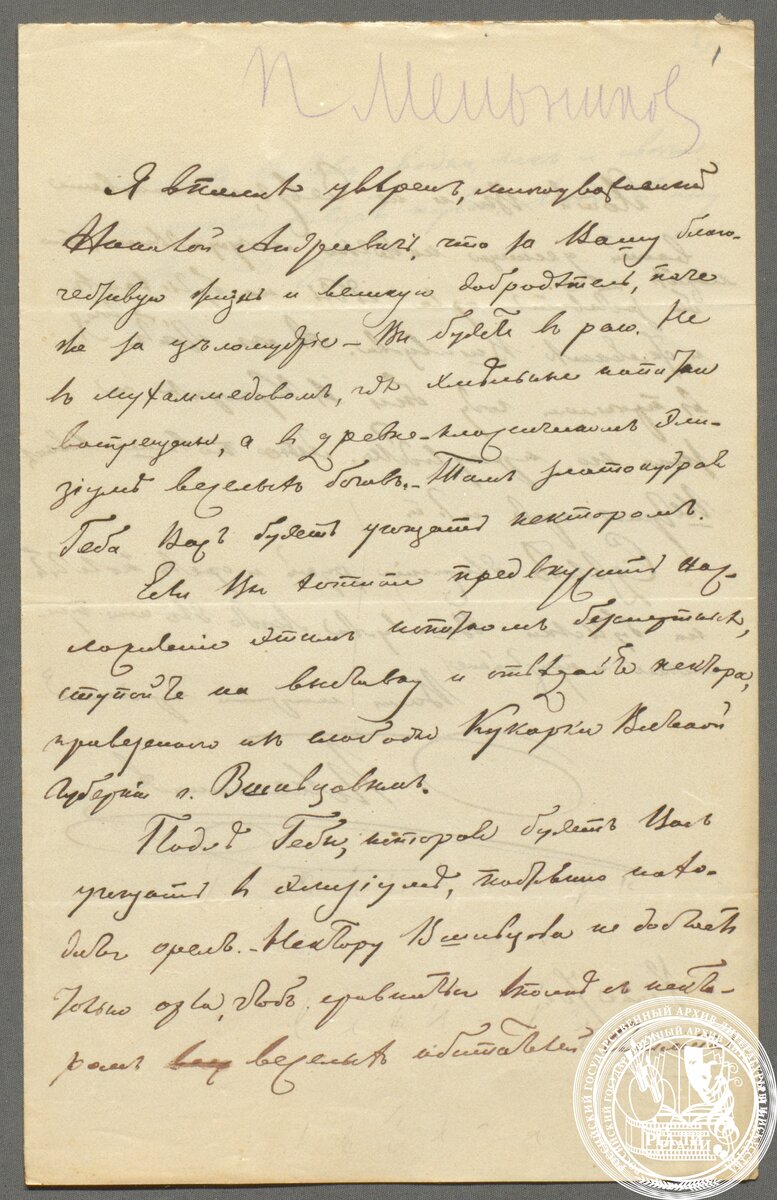 П Мельников
1
Я вполнѣ увѣренъ, многоуважаемый
Андреевичъ, что за Вашу благо-
честивую жизнь и великую добродѣтель, паче
же за цѣломудріе – Вы будете въ раю. Не
въ мухаммедовомъ, гдѣ хмѣльные напитки
воспрещены, а въ древне-классическомъ Эли-
зіумѣ веселыхъ боговъ. – Тамъ златокудрая
Геба Васъ будетъ угощать нектаромъ.
Если Вы хотите предвкусить нас-
лажденіе этимъ напиткомъ безсмертныхъ,
ступайте на выставку и отвѣдайте нектара,
привезеннаго изъ слободы Кукарки Вятской
губерніи г. Вшивцовымъ.
Подлѣ Гебы, которая будетъ Васъ
угощать въ Элизіумѣ, постоянно нахо-
дится орелъ. – Нектару Вшивцова не достаетъ
только орла, чтобъ сравниться вполнѣ съ некта-
ромъ веселыхъ обитателей
РОССИЙСКИЙ ГОСУДАРСТВЕННЫЙ АРХИВ ЛИТЕРАТУРЫ И ИСКУССТВА
РГАЛИ